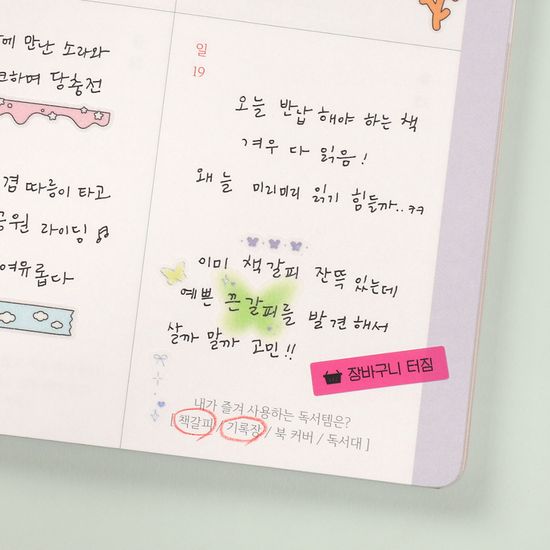 에 만난 소라와
하며 당충전
겸 따릉이 타고
공원 라이딩
여유롭다
일
19
오늘 반납 해야 하는 책
겨우 다 읽음!
왜 늘 미리미리 읽기 힘들까..ㅋㅋ
이미 책갈피 잔뜩 있는데
예쁜 끈갈피를 발견해서
살까 말까 고민!!
장바구니 터짐
내가 즐겨 사용하는 독서템은?
[ 책갈피 / 기록장 / 북 커버 / 독서대 ]